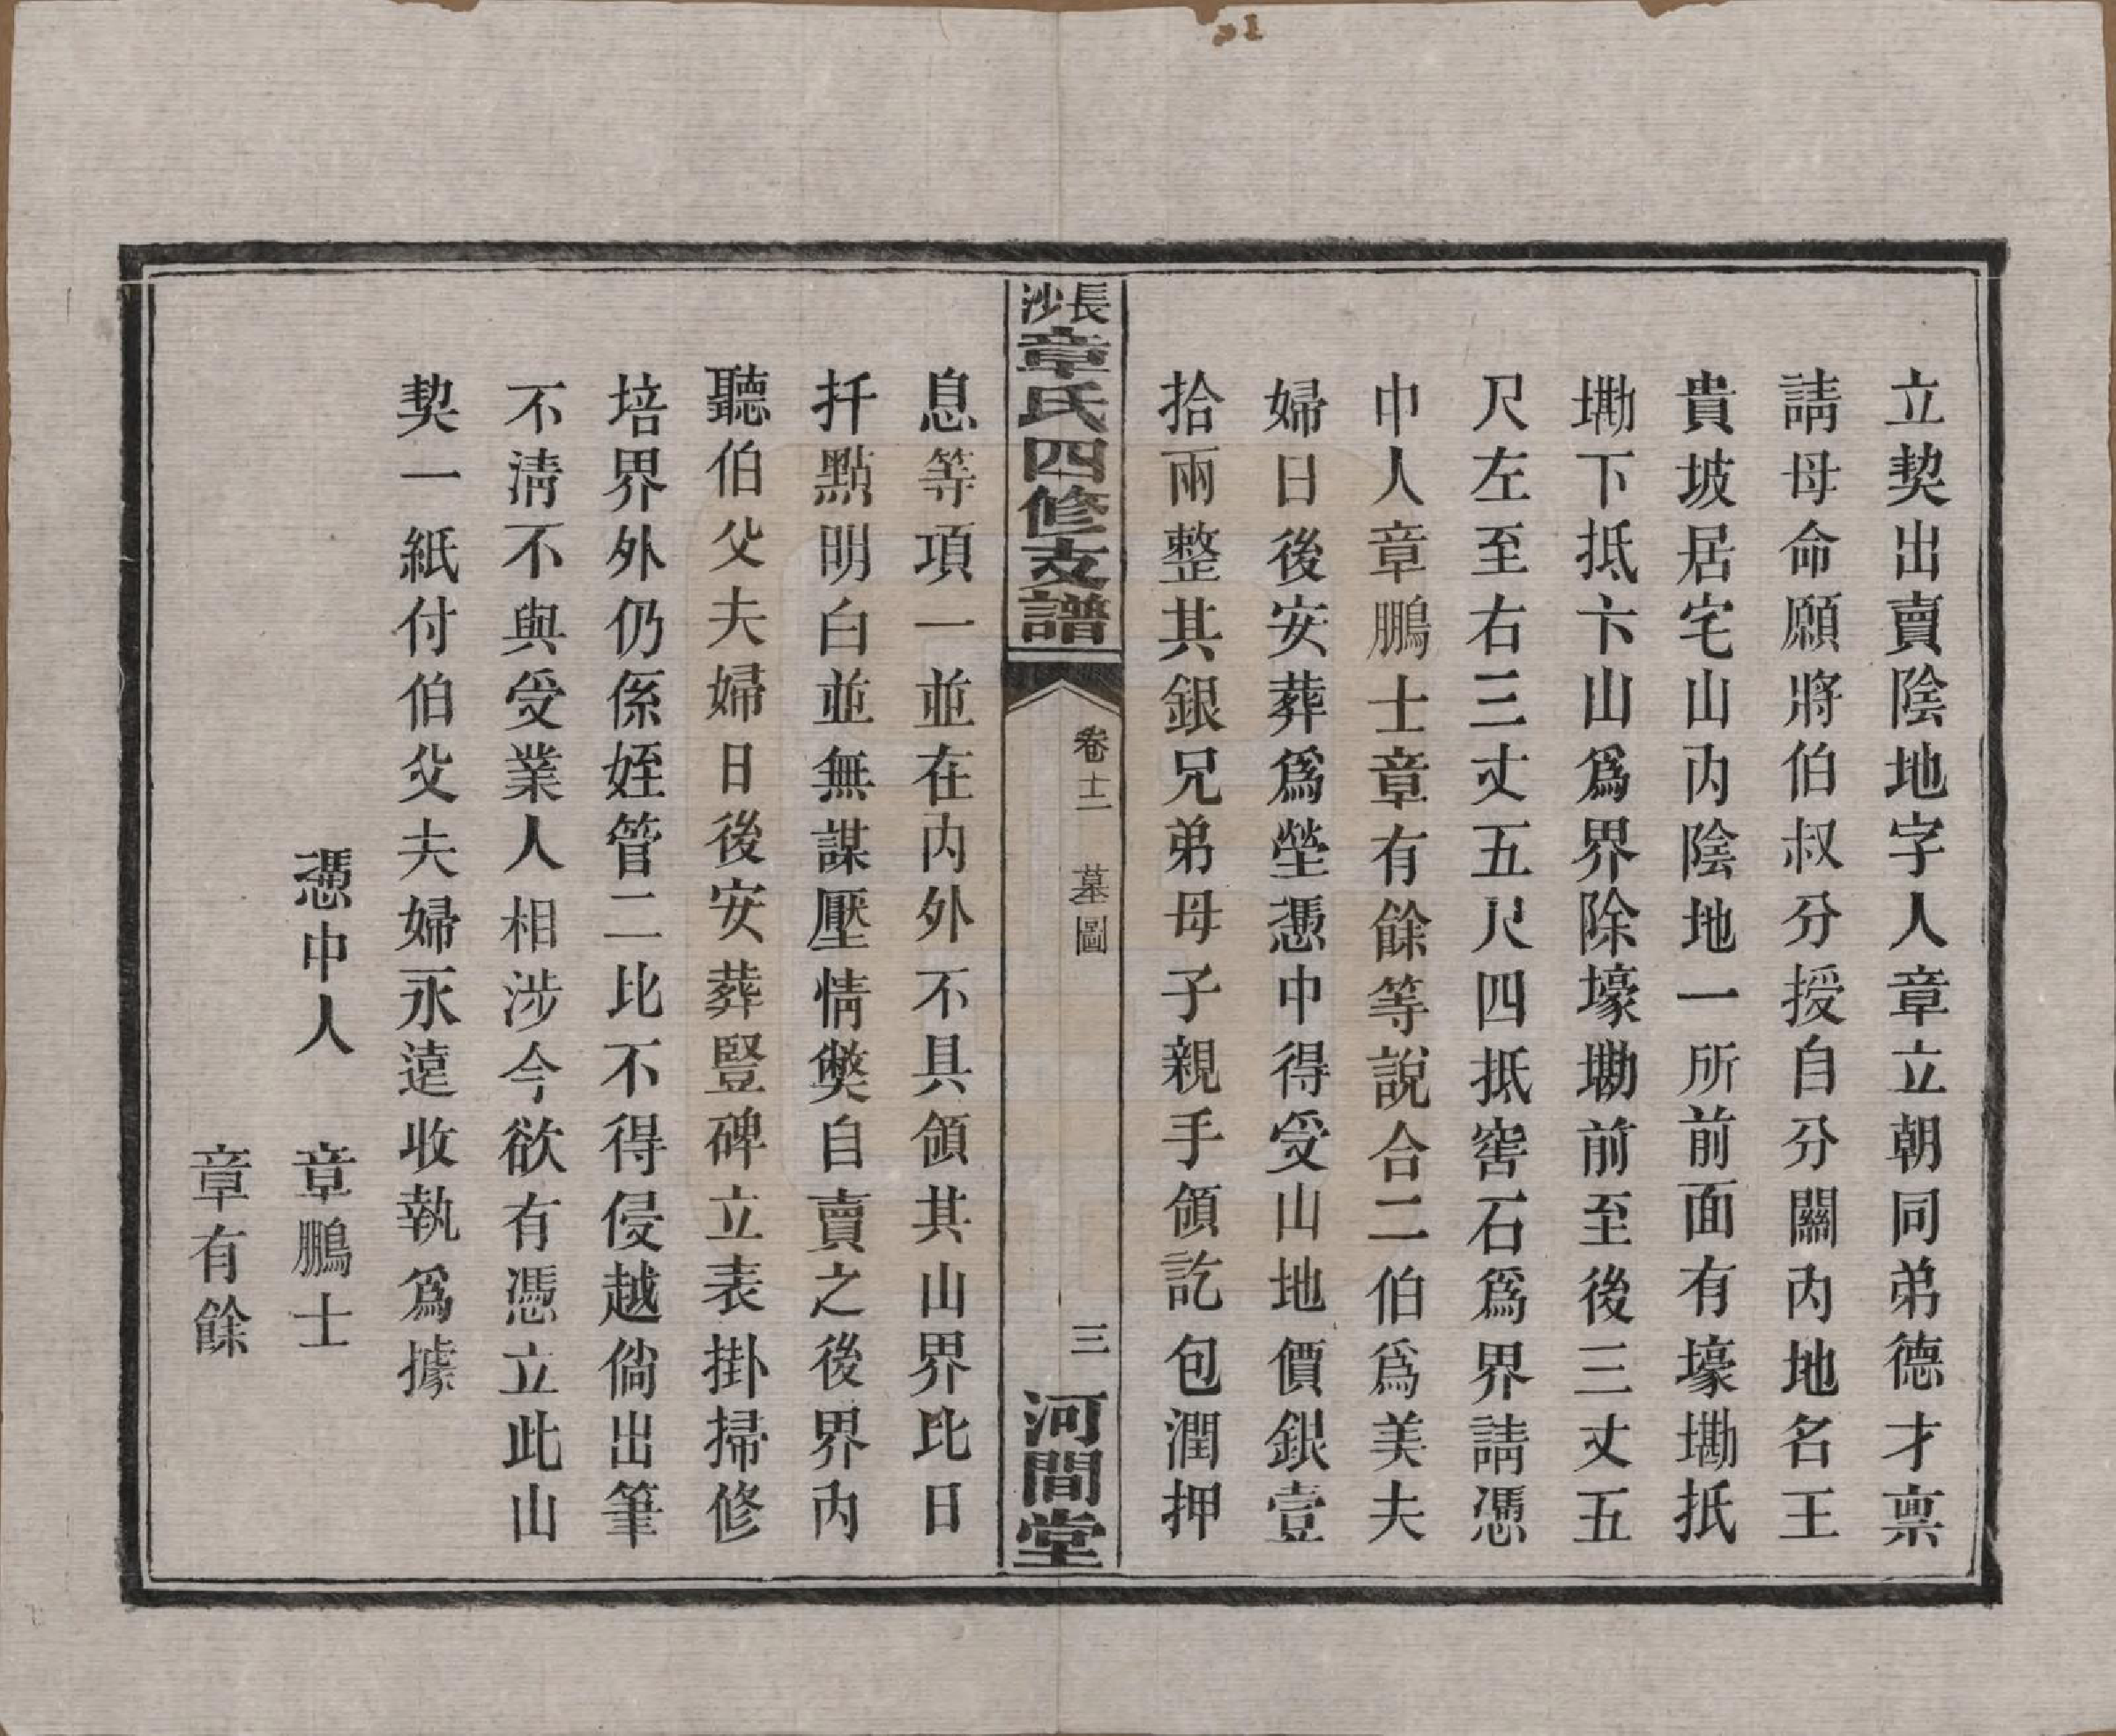 立契出賣陰地字人章立朝同弟德才禀
請母命願將伯叔分授自分關內地名王
貴坡居宅山內陰地一所前面有壕墈抵
墈下抵卞山爲界除壕墈前至後三丈五
尺左至右三丈五尺四抵窖石爲界請憑
中人章鵬士章有餘等說合二伯爲美夫
婦日後安葬爲塋憑中得受山地價銀壹
拾兩整其銀兄弟母子親手領訖包潤押
長沙章氏四修支譜
卷十二 墓圖
三
河間堂
息等項一並在內外不具領其山界比日
扦點明白並無謀壓情獘自賣之後界內
聽伯父夫婦日後安葬豎碑立表掛掃修
培界外仍係姪管二比不得侵越倘出筆
不清不與受業人相涉今欲有憑立此山
契一紙付伯父夫婦永遠收執爲據
憑中人 章鵬士
章有餘